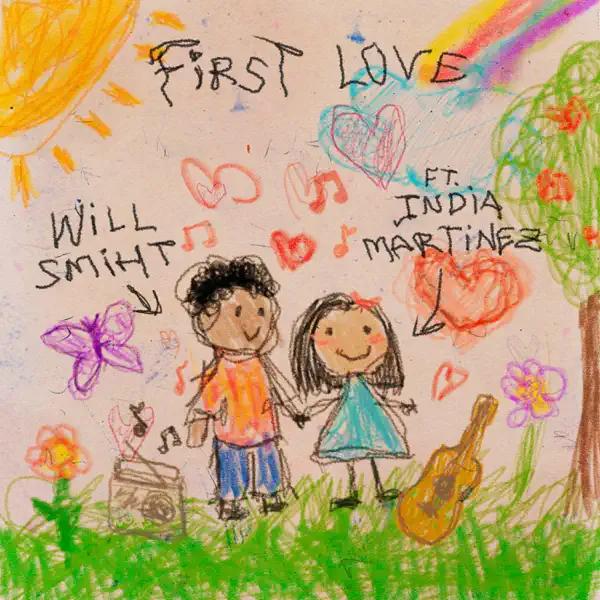 FiRST LOVE
WiLL
SMiHT
FT.
iNDiA
MARTiNEZ